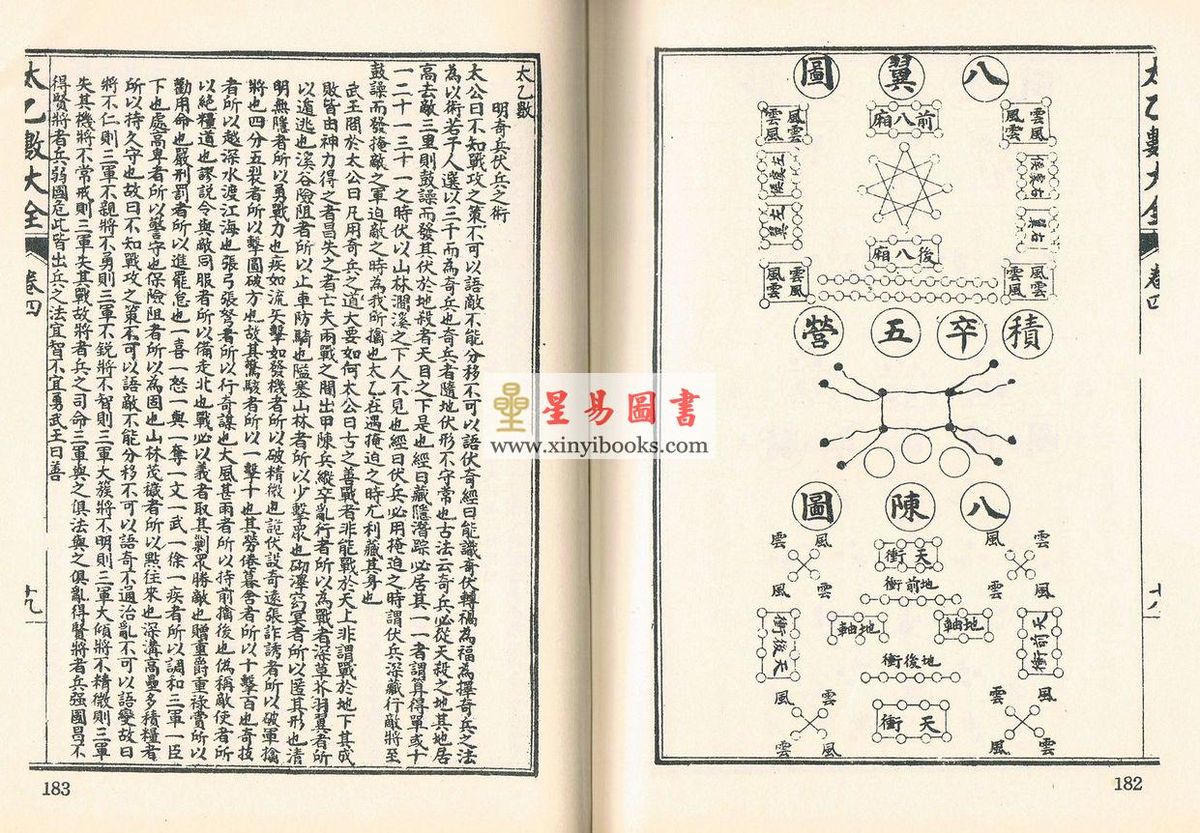 太乙數大全 卷四
八翼圖
風雲
雲風
前八廂
風雲
雲風
右虞候
左虞候
右翼
左翼
後八廂
雲風
風雲
雲風
風雲
積卒五營
八陳圖
雲
風
風
雲
風
雲
風
雲
天衝
地前衝
天前衝
地軸
地軸
天後衝
地後衝
天衝
風
雲
雲
風
雲
風
雲
風
十八
182
太乙數
明奇兵伏兵之術
太公曰不知戰攻之策不可以語敵不能分移不可以語伏奇經曰能識奇伏轉禍為福為擇奇兵之法
為以術若予人選以三千而為奇兵也奇兵者隨地伏形不守常也古法云奇兵必從天殺之地其地居
高去敵三里則鼓譟而發其伏於地殺者天目之下是也經曰藏隱潛踪必居其一一者謂算得單或十
一二十一三十一之時伏以山林澗溪之下人不見也經曰伏兵必用掩迫之時謂伏兵深藏行敵將至
鼓譟而發掩敵之軍迫敵之時為我所擒也太乙在遇掩迫之時尤利藏其身也
武王問於太公曰凡用奇兵之道大要如何太公曰古之善戰者非能戰於天上非謂戰於地下其成
敗皆由神力得之者昌失之者亡夫兩戰之間出甲陳兵縱卒亂行者所以為戰者深草芥羽翼者所
以遁逃也溪谷險阻者所以止車防騎也隘塞山林者所以少擊眾也砌澤窈冥者所以匿其形也清
明無隱者所以勇戰力也疾如流矢擊如發機者所以破精微也詭伏設奇遠張詐誘者所以破軍擒
將也四分五裂者所以擊圓破方也故其驚駭者所以一擊十也其勞倦暮舍者所以十擊百也奇技
者所以越深水渡江海也張弓張弩者所以行奇謀也大風甚雨者所以持前擒後也偽稱敵使者所
以絕糧道也謬說令與敵同服者所以備走北也戰必以義者取其剿眾勝敵也贈重爵重祿賞所以
勸用命也嚴刑罰者所以進罷怠也一喜一怒一與一奪一文一武一徐一疾者所以調和三軍一臣
下也處高卑者所以警守也保險阻者所以為固也山林茂穢者所以點往來也深溝高壘多積糧者
所以持久守也故曰不知戰攻之策不可以語敵不能分移不可以語奇不通治亂不可以語變故曰
將不仁則三軍不親將不勇則三軍不銳將不智則三軍大簇將不明則三軍大傾將不精微則三軍
失其機將不常戒則三軍失其戰故將者兵之司命三軍與之俱法與之俱亂得賢將者兵强國昌不
得賢將者兵弱國危此皆出兵之法宜智不宜勇武王曰善
太乙數大全 卷四
十九
183
星易圖書
www.xinyibooks.com